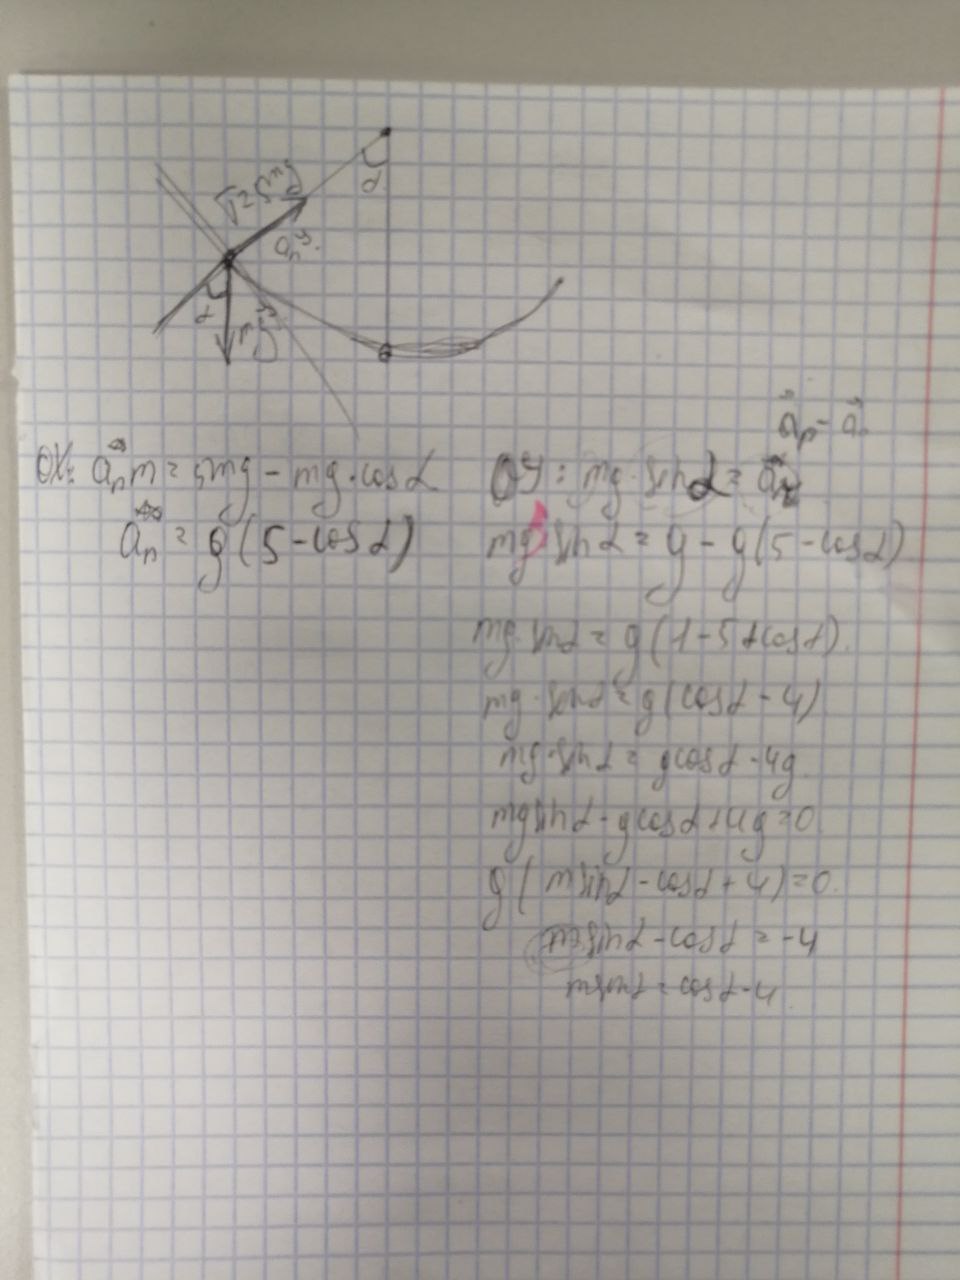 T=5mg
α
aₙ
α
mg
aₙ - a
OX: aₙm = 5mg - mg·cosα
OY: mg·sinα = aτ
aₙ = g(5-cosα)
mg sinα = g - g(5-cosα)
mg·sinα = g(1-5+cosα).
mg·sinα = g(cosα-4)
mg·sinα = gcosα-4g.
mgsinα-gcosα+4g=0
g(msinα-cosα+4)=0.
msinα-cosα = -4
msinα = cosα-4